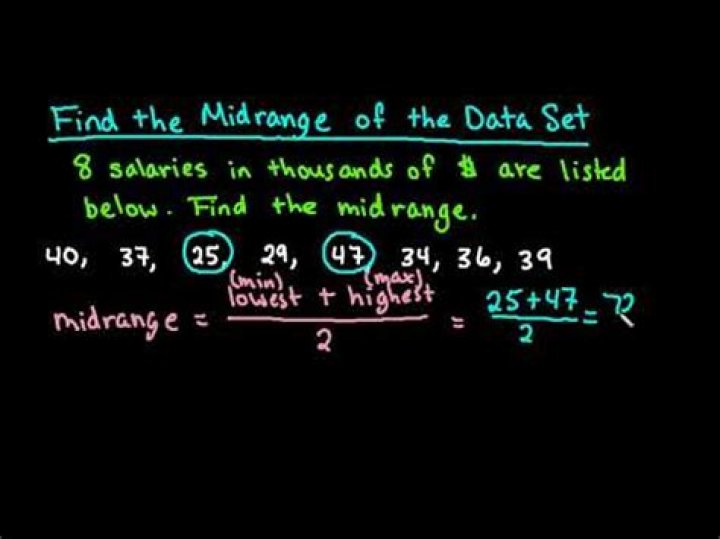 Find the Midrange of the Data Set
8 salaries in thousands of $ are listed
below. Find the midrange.
40, 37, 25, 29, 47, 34, 36, 39
(min) (max)
midrange = lowest + highest / 2 = 25+47 / 2 = 72